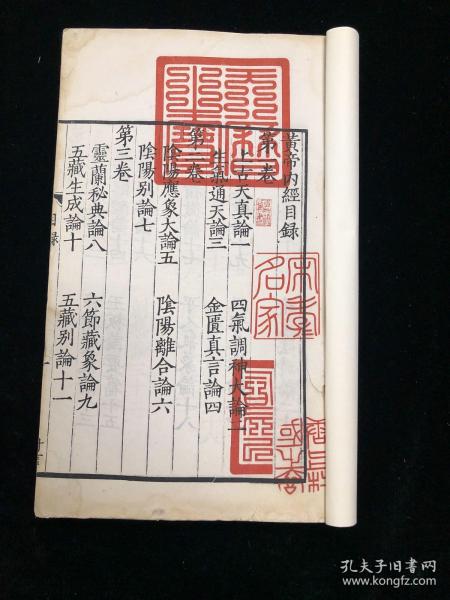 黃帝內經目録
第一卷
上古天真論一 四氣調神大論二
生氣通天論三 金匱真言論四
第二卷
陰陽應象大論五 陰陽離合論六
陰陽别論七
第三卷
靈蘭秘典論八 六節藏象論九
五藏生成論十 五藏别論十一
目録
孔夫子旧书网
www.kongfz.com